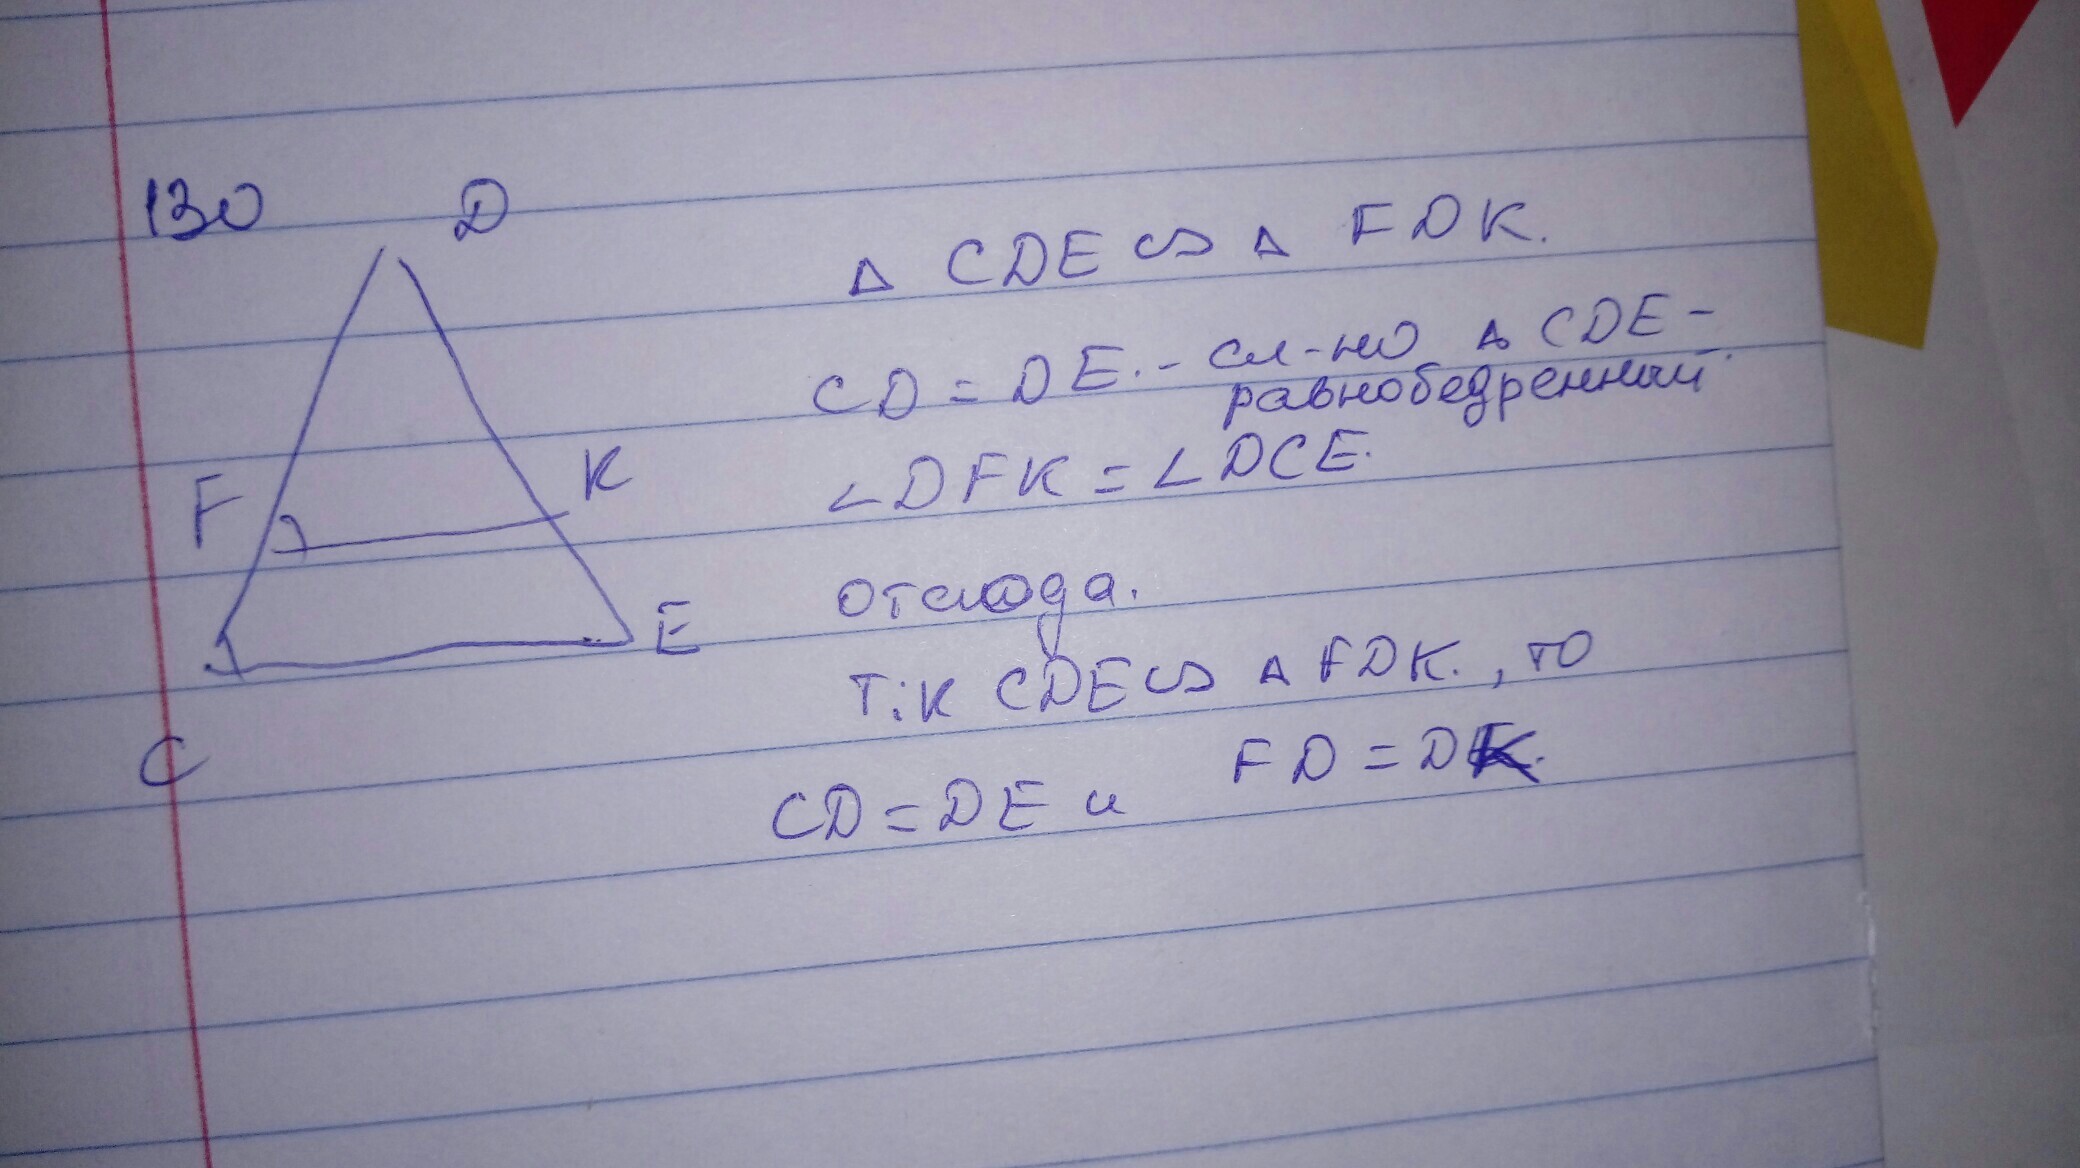 130
D
F
K
E
C
△ CDE ∽ △ FDK.
CD = DE. - сл-но △ CDE -
равнобедренный.
∠DFK = ∠DCE.
отсюда.
Т.к CDE ∽ △ FDK., то
CD = DE и FD = DK.